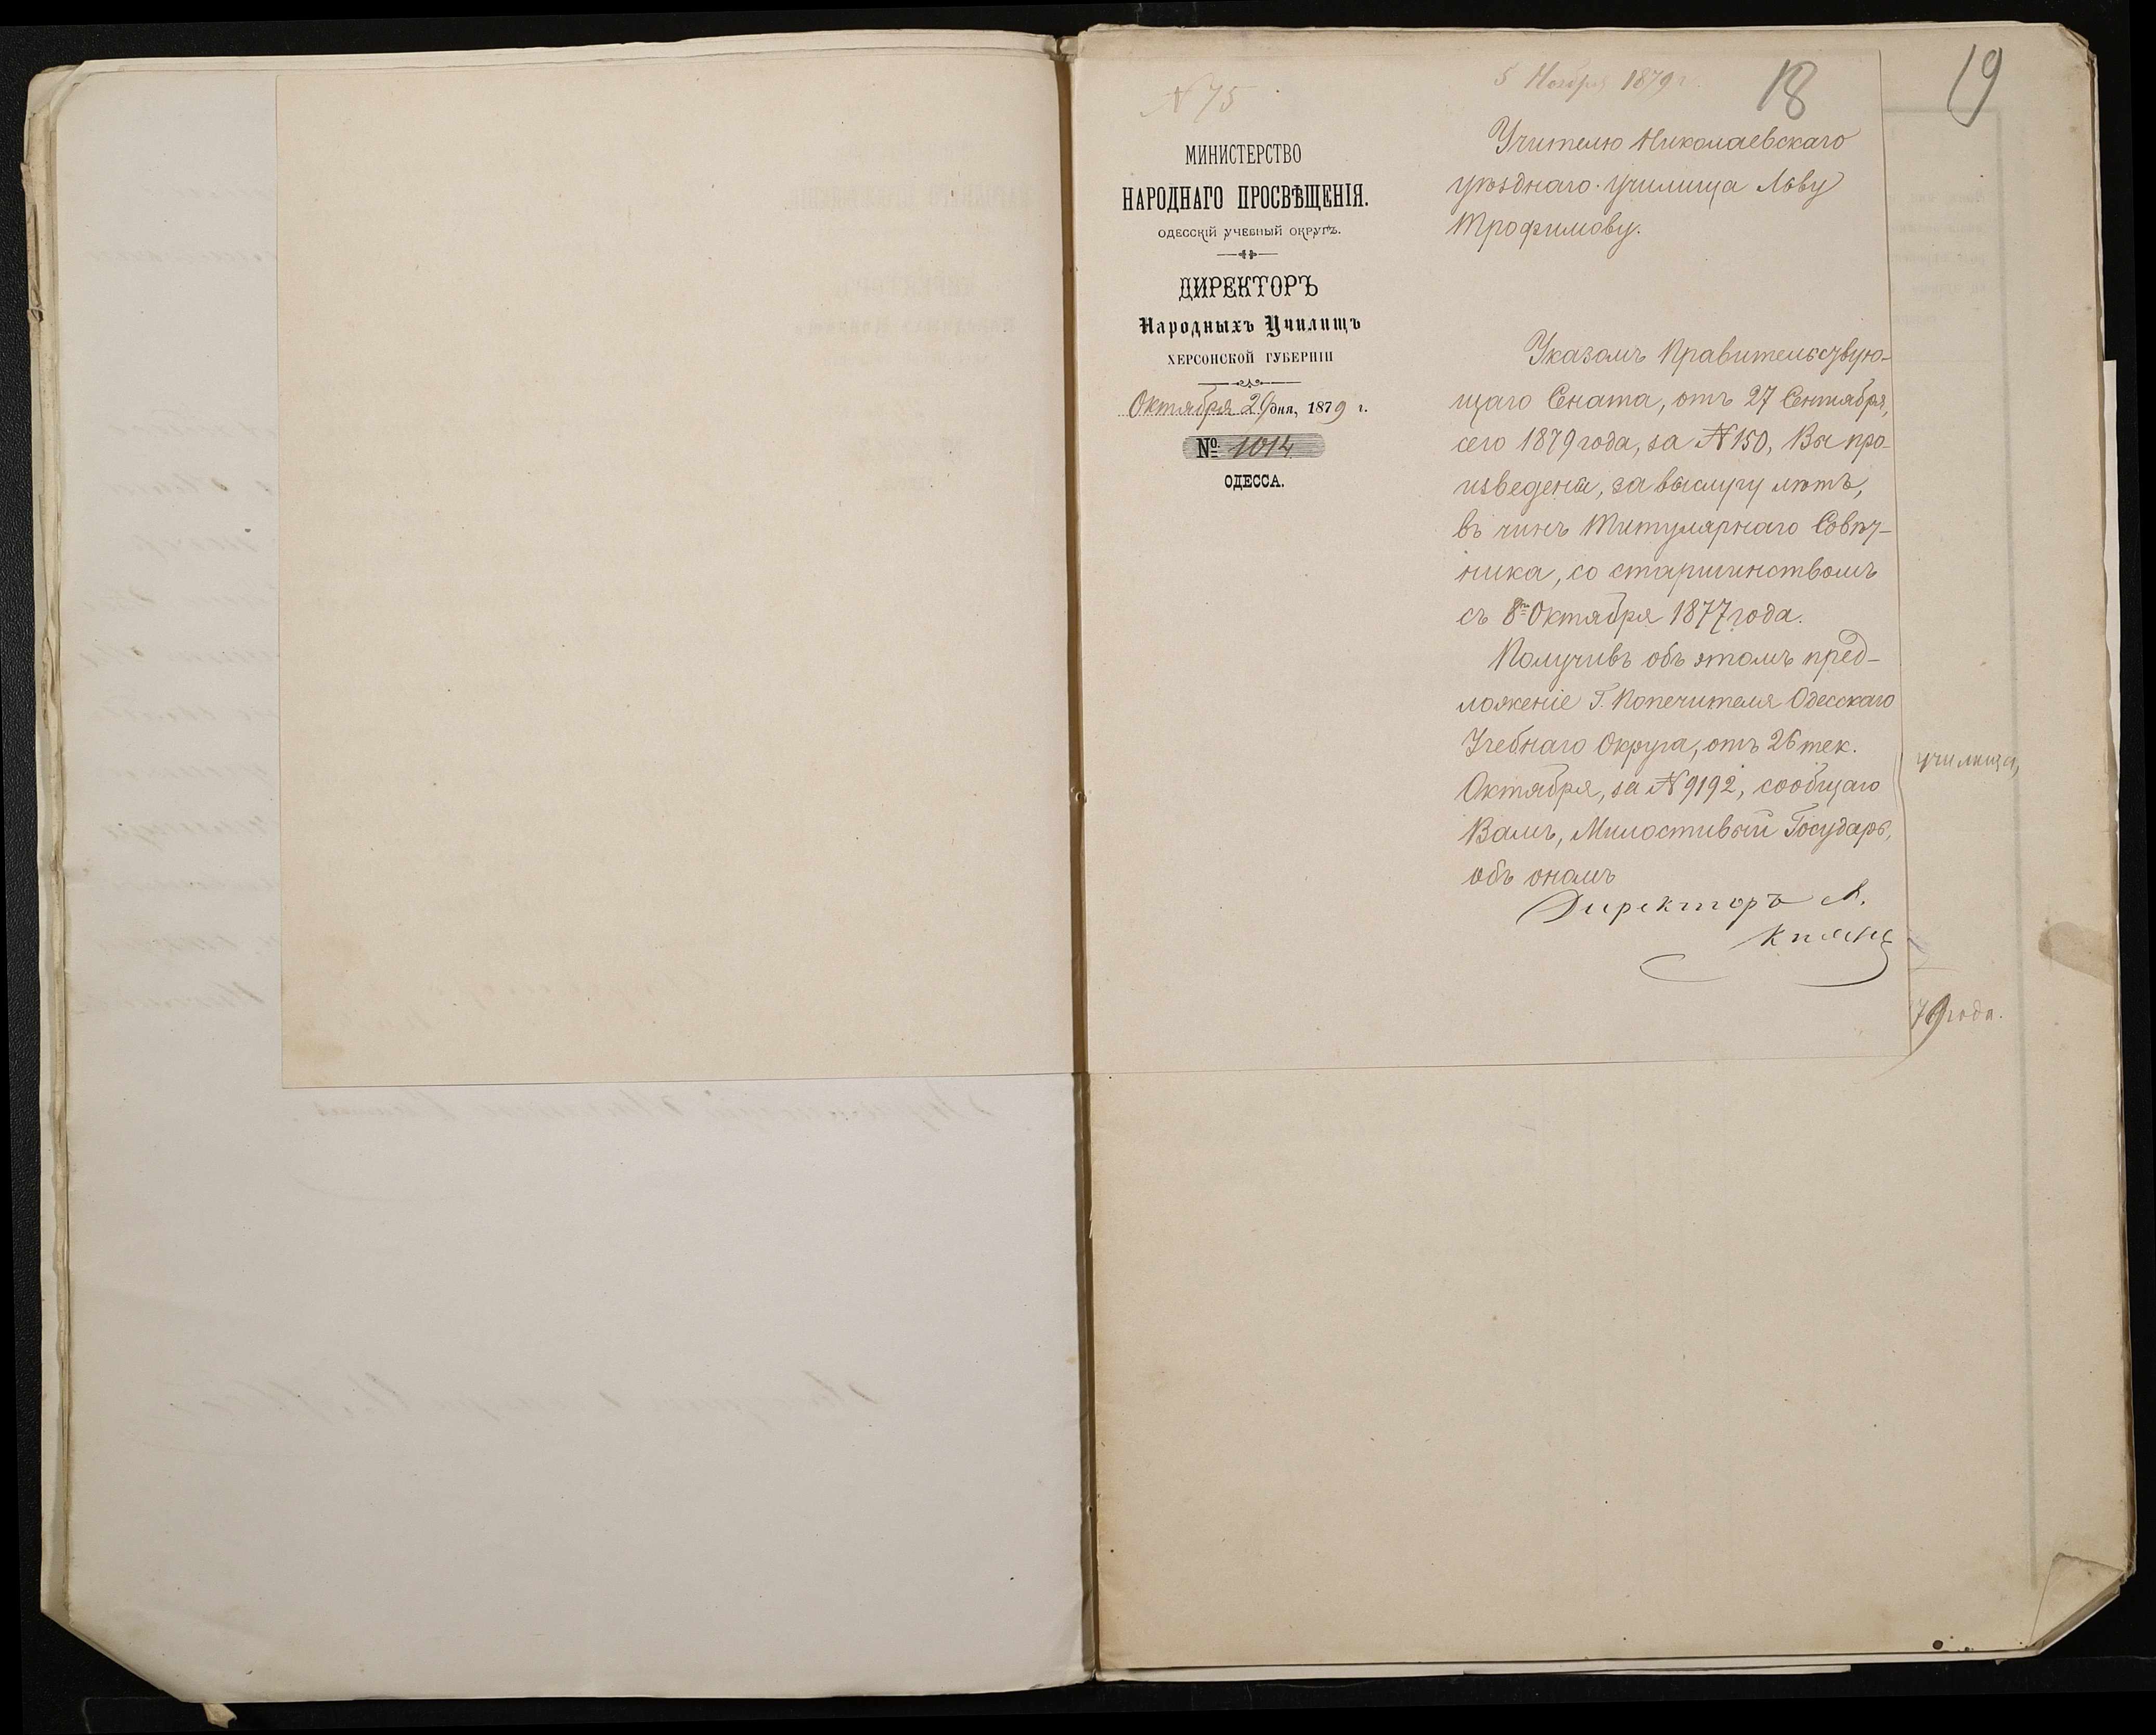 № 75
5 Ноября 1879 г.
18
19
МИНИСТЕРСТВО
НАРОДНАГО ПРОСВѢЩЕНІЯ.
ОДЕССКІЙ УЧЕБНЫЙ ОКРУГЪ.
ДИРЕКТОРЪ
Народныхъ Училищъ
ХЕРСОНСКОЙ ГУБЕРНІИ
Октября 29 дня, 1879 г.
№ 1014
ОДЕССА.
Учителю Николаевскаго
уѣзднаго училища Льву
Трофимову.
Указомъ Правительствую-
щаго Сената, отъ 27 Сентября,
сего 1879 года, за № 150, Вы про-
изведены, за выслугу лѣтъ,
въ чинъ Титулярнаго Совѣт-
ника, со старшинствомъ
съ 8го Октября 1877 года.
Получивъ объ этомъ пред-
ложеніе Г. Попечителя Одесскаго
Учебнаго Округа, отъ 26 тек.
Октября, за № 9192, сообщаю
Вамъ, Милостивый Государь,
объ ономъ
Директоръ
училища,
79 года.